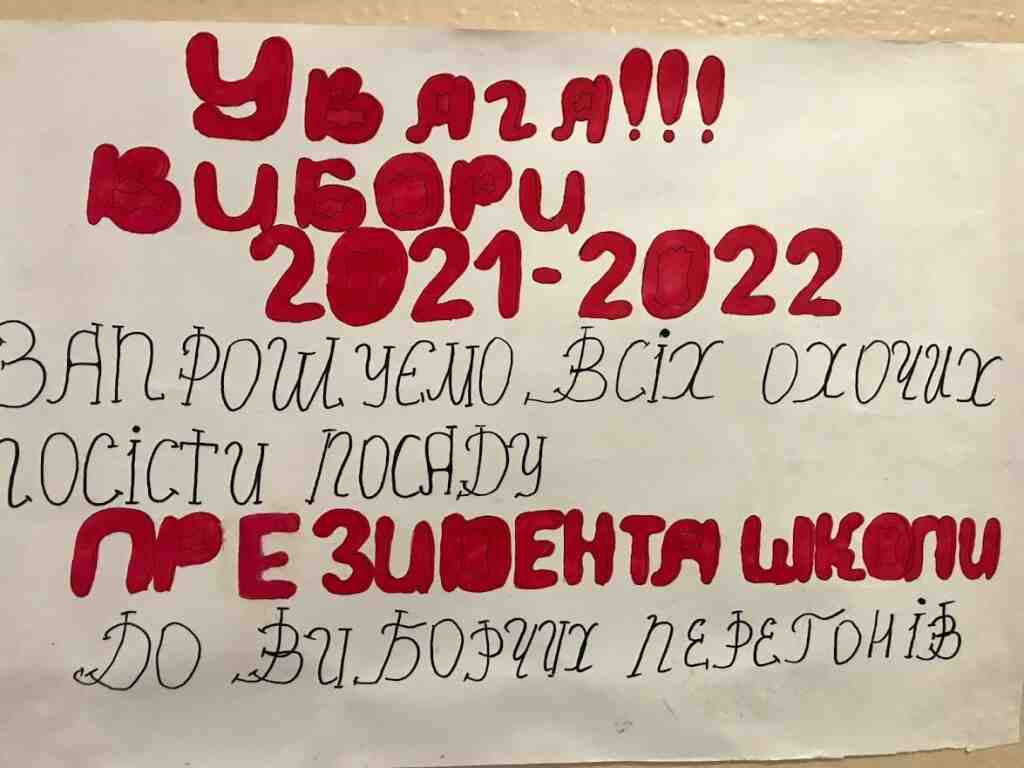 Увага!!!
ВИБОРИ
2021-2022
ЗАПРОШУЄМО ВСІХ ОХОЧИХ
ПОСІСТИ ПОСАДУ
ПРЕЗИДЕНТА ШКОЛИ
ДО ВИБОРЧИХ ПЕРЕГОНІВ